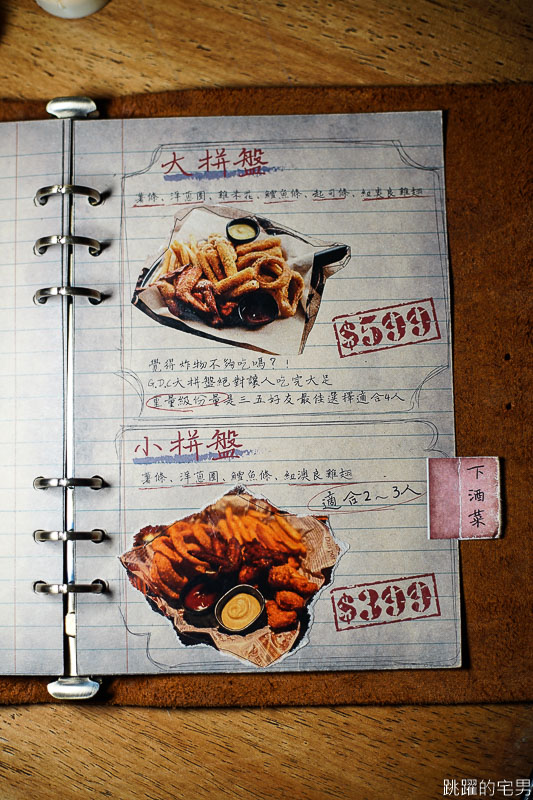 大拼盤
薯條、洋蔥圈、雞米花、鱈魚條、起司條、紐奧良雞翅
$599
覺得炸物不夠吃嗎?!
G.D.C大拼盤絕對讓人吃完大足
重量級份量是三五好友最佳選擇適合4人
小拼盤
薯條、洋蔥圈、鱈魚條、紐澳良雞翅
適合2~3人
下酒菜
$399
跳躍的宅男